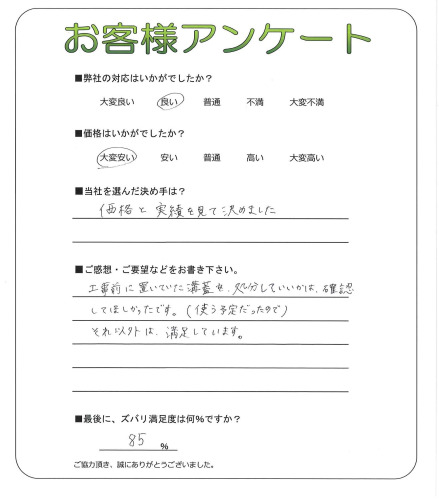 お客様アンケート
■弊社の対応はいかがでしたか？
大変良い 良い 普通 不満 大変不満
■価格はいかがでしたか？
大変安い 安い 普通 高い 大変高い
■当社を選んだ決め手は？
価格と実績を見て決めました
■ご感想・ご要望などをお書き下さい。
工事前に置いていた溝蓋を、処分していいかは、確認
してほしかったです。(使う予定だったので)
それ以外は、満足しています。
■最後に、ズバリ満足度は何％ですか？
85 ％
ご協力頂き、誠にありがとうございました。